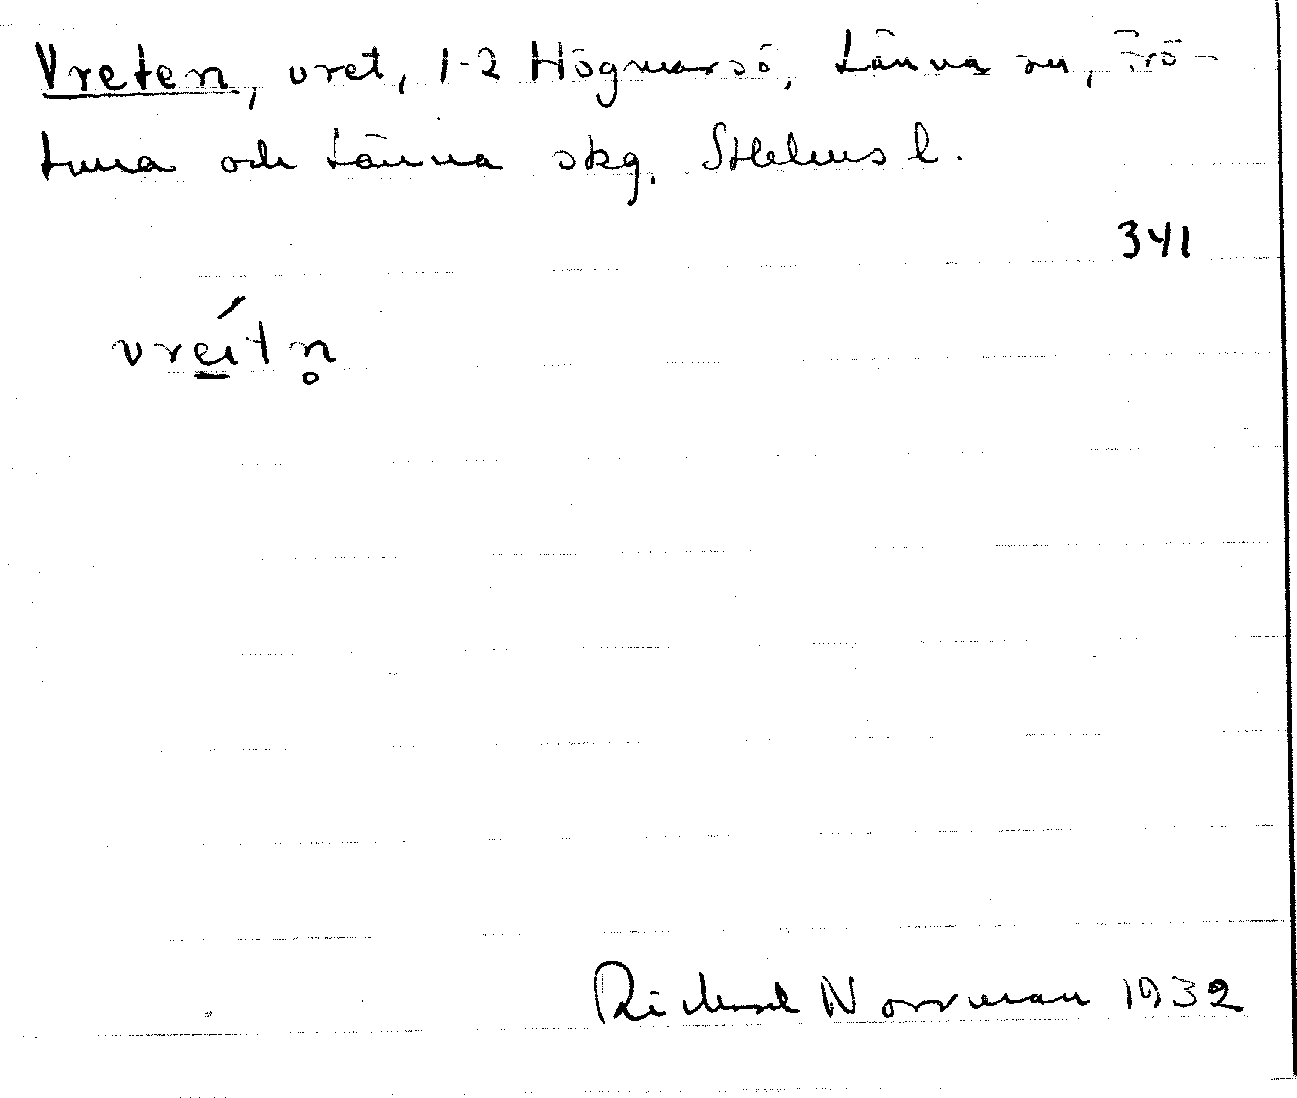 Vreten, vret, 1-2 Högmarsö, Länna sn, Frö-
tuna och Länna skg. Sthlms l.
341
vreítn̥
Rickard Norrman 1932